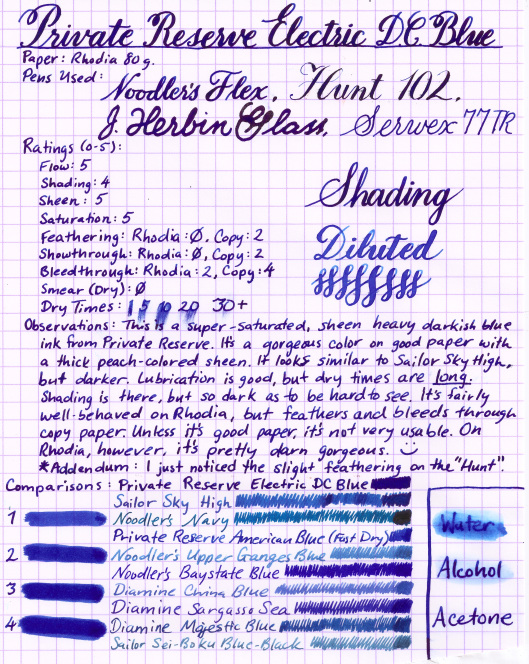 Private Reserve Electric DC Blue
Paper: Rhodia 80g.
Pens Used:
Noodler's Flex, Hunt 102,
J. Herbin Glass, Serwex 77TR
Ratings (0-5):
Flow: 5
Shading: 4
Sheen: 5
Saturation: 5
Feathering: Rhodia: Ø, Copy: 2
Showthrough: Rhodia: Ø, Copy: 2
Bleedthrough: Rhodia: 2, Copy: 4
Smear (Dry): Ø
Dry Times: 1 5 10 20 30+
Shading
Diluted
Observations: This is a super-saturated, sheen heavy darkish blue
ink from Private Reserve. It's a gorgeous color on good paper with
a thick peach-colored sheen. It looks similar to Sailor Sky High,
but darker. Lubrication is good, but dry times are long.
Shading is there, but so dark as to be hard to see. It's fairly
well-behaved on Rhodia, but feathers and bleeds through
copy paper. Unless it's good paper, it's not very usable. On
Rhodia, however, it's pretty darn gorgeous.
*Addendum: I just noticed the slight feathering on the "Hunt".
Comparisons: Private Reserve Electric DC Blue
Sailor Sky High
1 Noodler's Navy
Private Reserve American Blue (Fast Dry)
2 Noodler's Upper Ganges Blue
Noodler's Baystate Blue
3 Diamine China Blue
Diamine Sargasso Sea
4 Diamine Majestic Blue
Sailor Sei-Boku Blue-Black
Water
Alcohol
Acetone